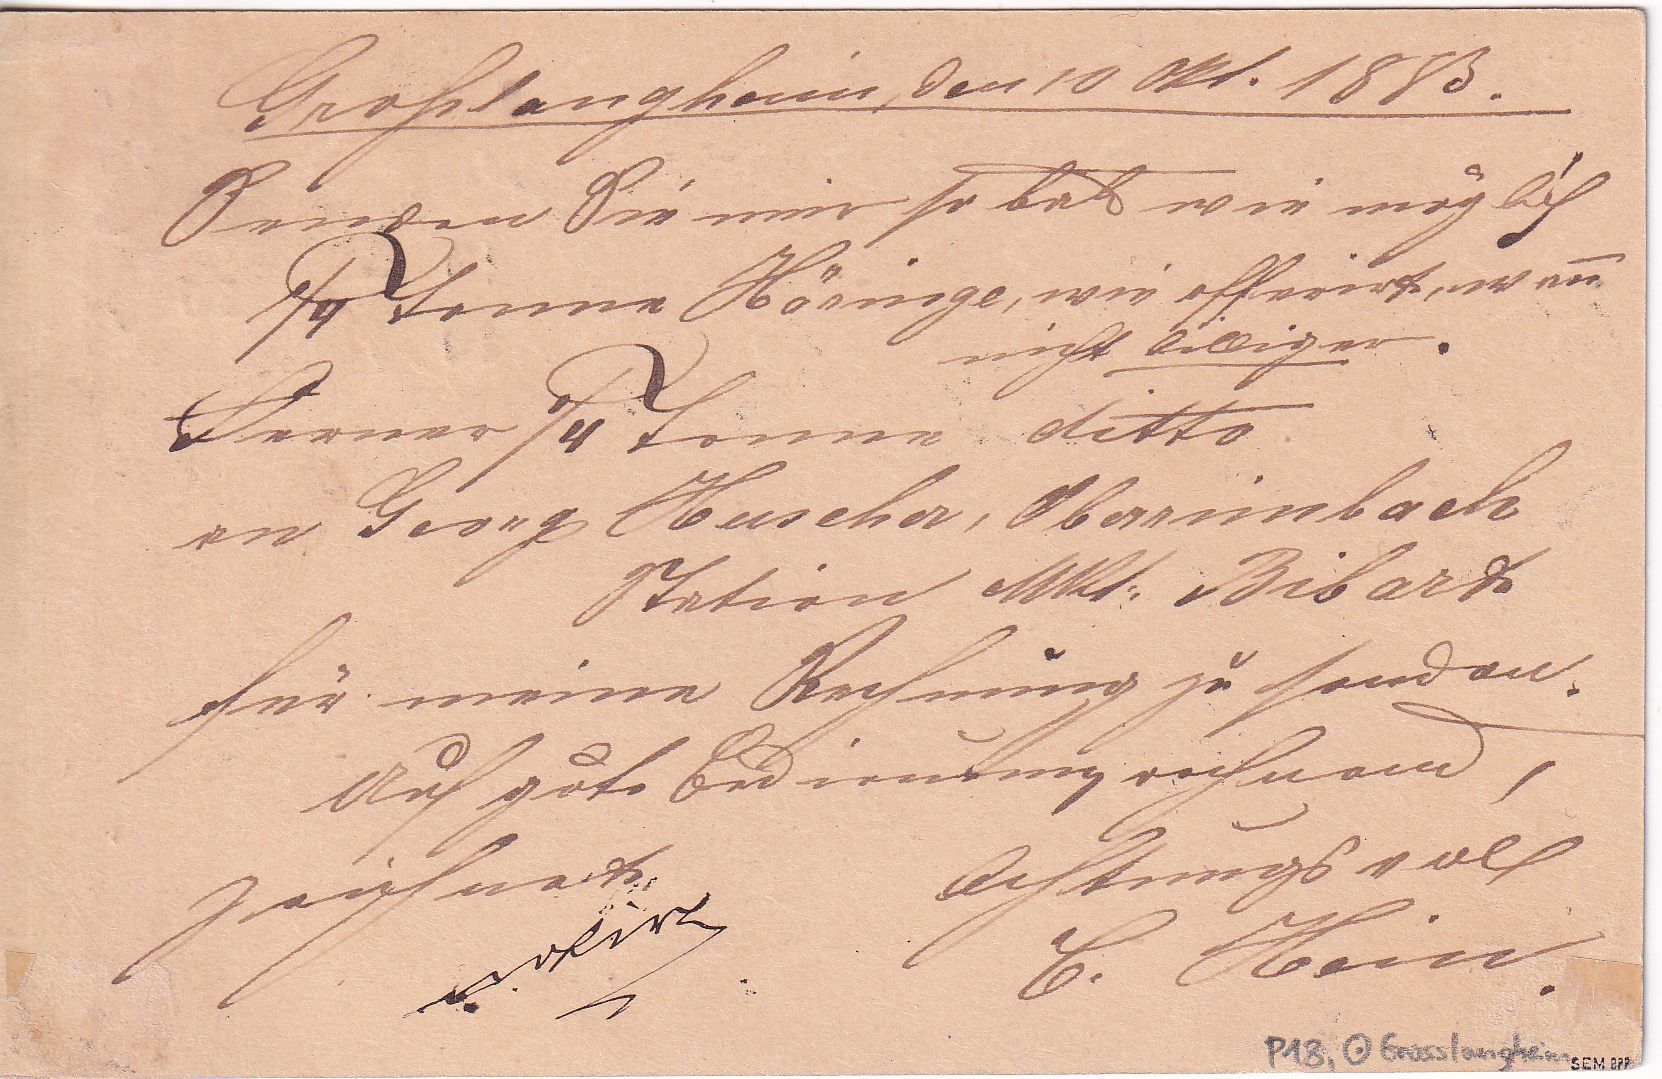 Großlangheim, den 10 Okt. 1883.
Senden Sie mir so bald wie möglich
1/4 Tonne Häringe, wie offerirt, wenn
nicht billiger.
Ferner 1/4 Tonne ditto
an Georg Huscher, Oberrimbach
Station Mkt. Bibart
für meine Rechnung zu senden.
Auf gute Bedienung rechnend,
zeichnet Achtungsvoll
C. Hein.
P18, Grosslangheim
SEM BPP